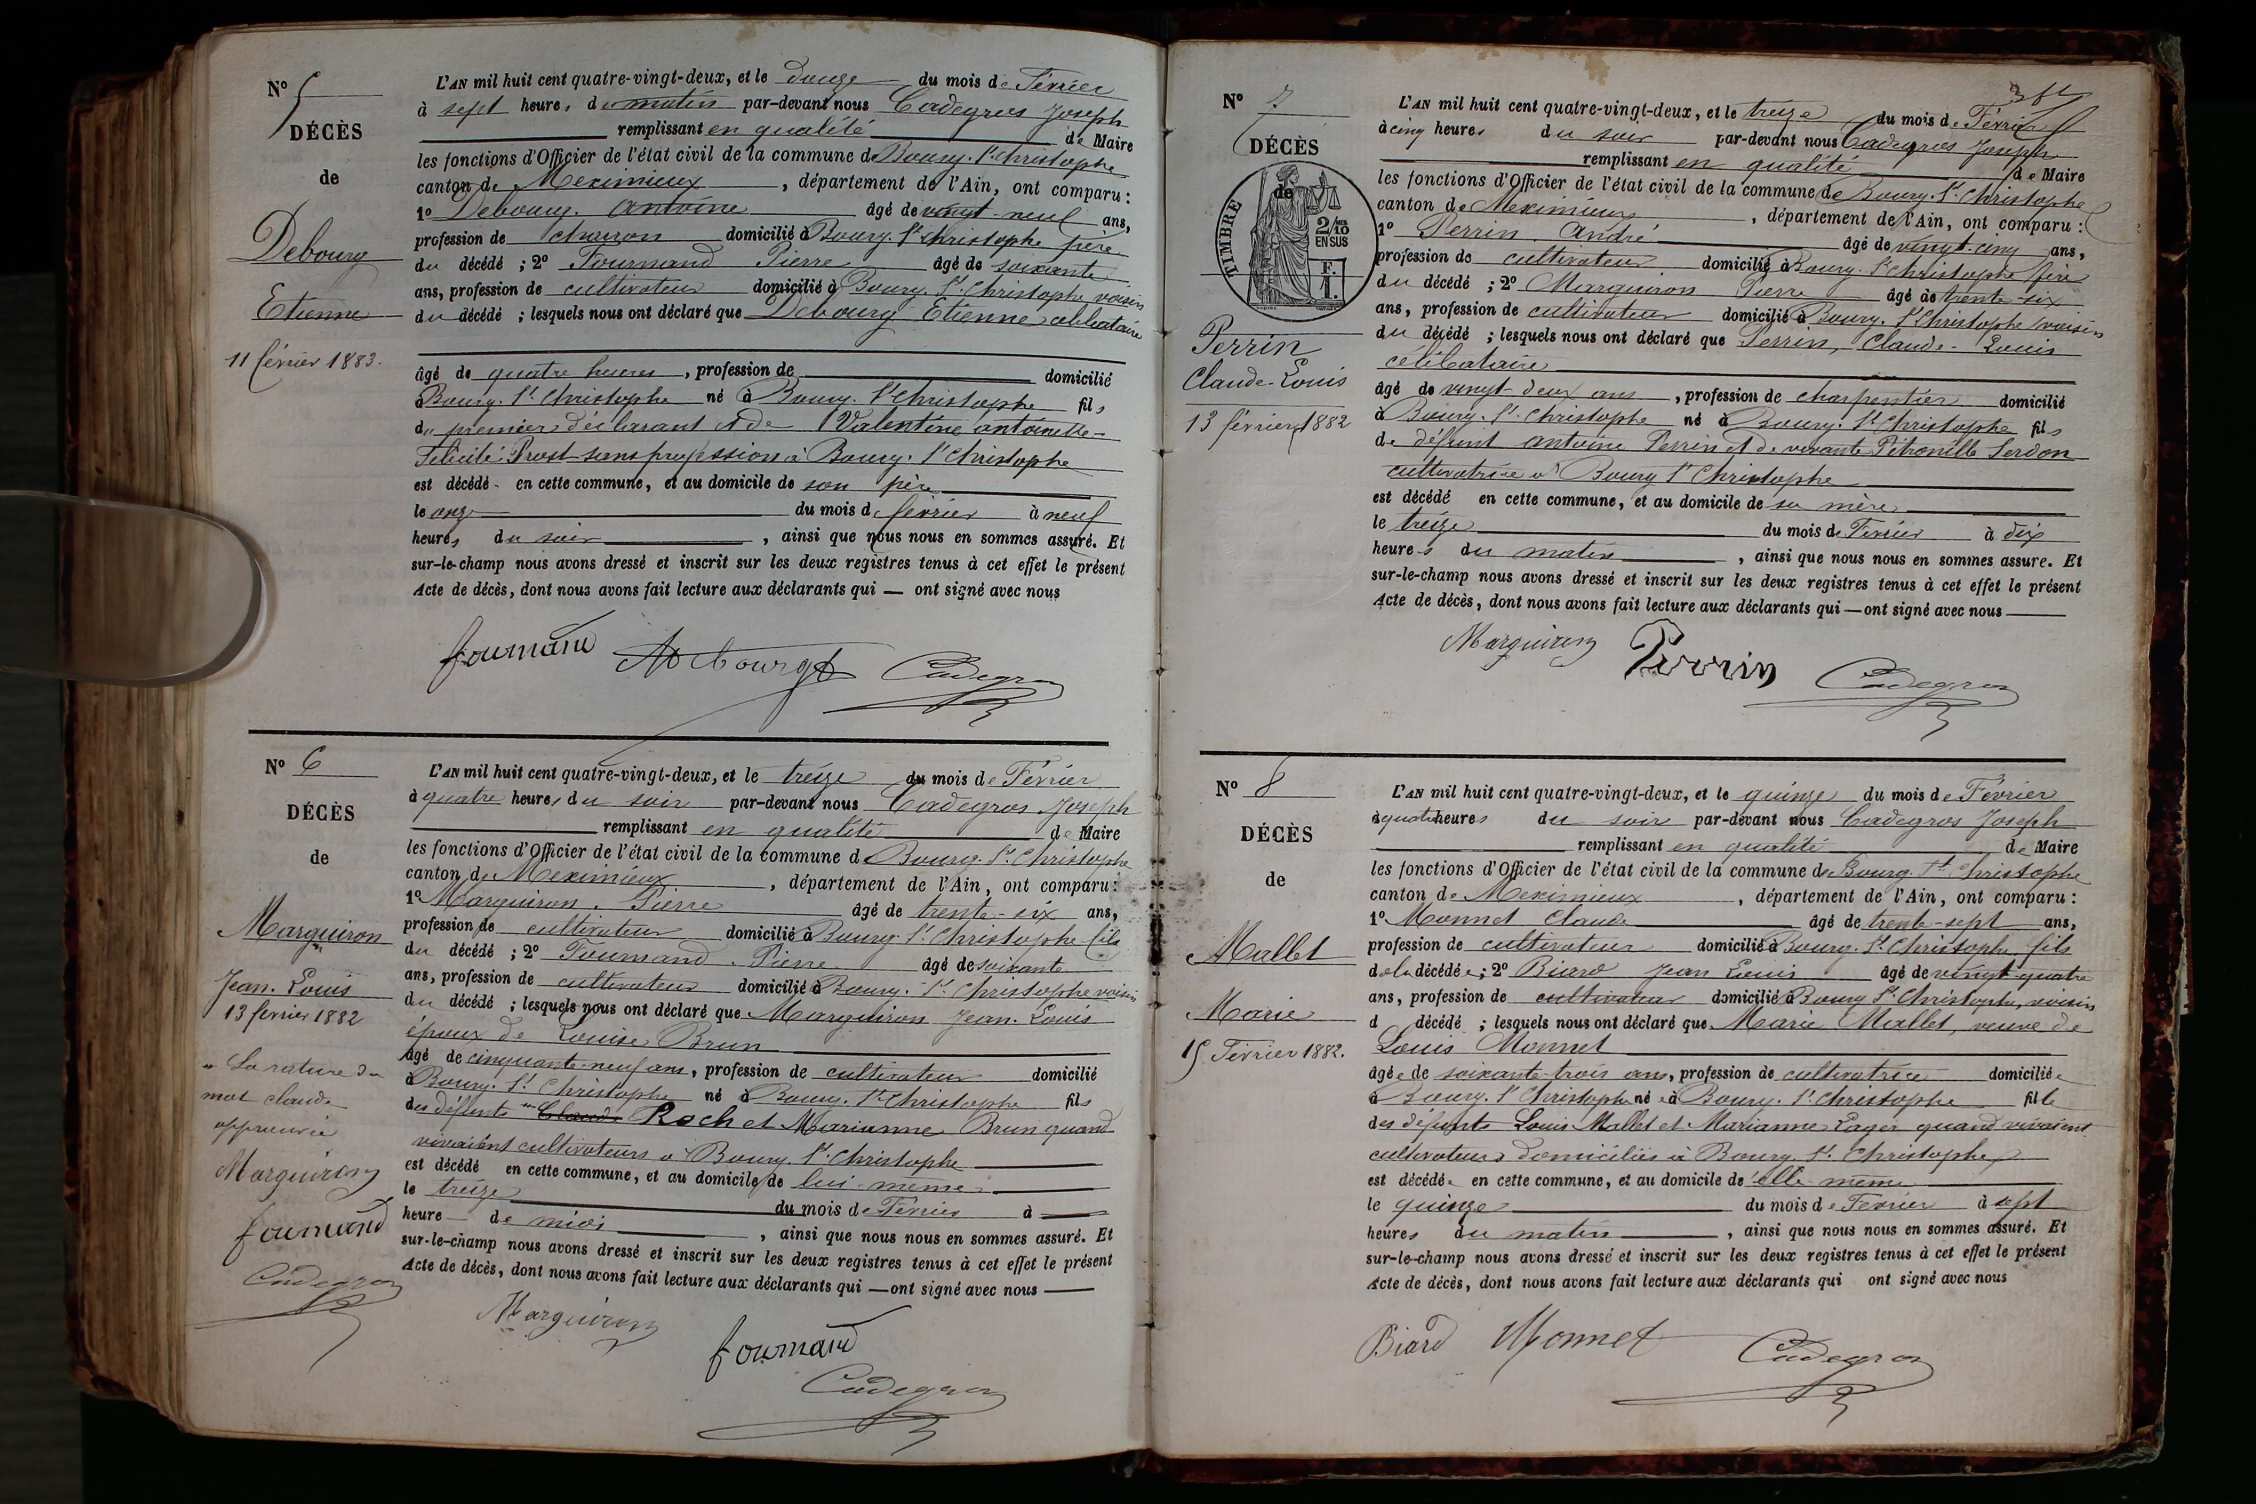 Nº 5
DÉCÈS
de
Debourg
Etienne
11 février 1883.
L'AN mil huit cent quatre-vingt-deux, et le douze du mois de Février
à sept heures du matin par-devant nous Cadegros Joseph
remplissant en qualité de Maire
les fonctions d'Officier de l'état civil de la commune de Bourg-St-Christophe
canton de Meximieux, département de l'Ain, ont comparu :
1º Debourg Antoine âgé de vingt-neuf ans,
profession de charron domicilié à Bourg-St-Christophe père
du décédé ; 2º Fournand Pierre âgé de soixante
ans, profession de cultivateur domicilié à Bourg-St-Christophe voisin
du décédé ; lesquels nous ont déclaré que Debourg Etienne célibataire
âgé de quatre heures, profession de domicilié
à Bourg-St-Christophe né à Bourg-St-Christophe fils
du premier déclarant et de Valentine antoinette-
Félicité Prost sans profession à Bourg-St-Christophe
est décédé en cette commune, et au domicile de son père
le onze du mois de février à neuf
heures du soir, ainsi que nous nous en sommes assuré. Et
sur-le-champ nous avons dressé et inscrit sur les deux registres tenus à cet effet le présent
Acte de décès, dont nous avons fait lecture aux déclarants qui — ont signé avec nous
fournand ADebourg Cadegros
Nº 6
DÉCÈS
de
Marguiron
Jean-Louis
13 février 1882
" La rature du
mot claude
approuvée
Marguiron
fournand
Cadegros
L'AN mil huit cent quatre-vingt-deux, et le treize du mois de Février
à quatre heures du soir par-devant nous Cadegros Joseph
remplissant en qualité de Maire
les fonctions d'Officier de l'état civil de la commune de Bourg-St-Christophe
canton de Meximieux, département de l'Ain, ont comparu :
1º Marguiron Pierre âgé de trente-six ans,
profession de cultivateur domicilié à Bourg-St-Christophe fils
du décédé ; 2º Fournand Pierre âgé de soixante
ans, profession de cultivateur domicilié à Bourg-St-Christophe voisin
du décédé ; lesquels nous ont déclaré que Marguiron Jean-Louis
époux de Louise Brun
âgé de cinquante-neuf ans, profession de cultivateur domicilié
à Bourg-St-Christophe né à Bourg-St-Christophe fils
des défunts " Claude Roch et Marianne Brun quand
vivaient cultivateurs à Bourg-St-Christophe
est décédé en cette commune, et au domicile de lui-même
le treize du mois de Février à
heure de midi, ainsi que nous nous en sommes assuré. Et
sur-le-champ nous avons dressé et inscrit sur les deux registres tenus à cet effet le présent
Acte de décès, dont nous avons fait lecture aux déclarants qui — ont signé avec nous
Marguiron
fournand
Cadegros
Nº 7
DÉCÈS
de
TIMBRE
2/10 EN SUS
F.
1.
Perrin
Claude-Louis
13 février 1882
L'AN mil huit cent quatre-vingt-deux, et le treize du mois de Février
à cinq heures du soir par-devant nous Cadegros Joseph
remplissant en qualité de Maire
les fonctions d'Officier de l'état civil de la commune de Bourg-St-Christophe
canton de Meximieux, département de l'Ain, ont comparu :
1º Perrin André âgé de vingt-cinq ans,
profession de cultivateur domicilié à Bourg-St-Christophe frère
du décédé ; 2º Marguiron Pierre âgé de trente-six
ans, profession de cultivateur domicilié à Bourg-St-Christophe voisin
du décédé ; lesquels nous ont déclaré que Perrin, Claude-Louis
célibataire
âgé de vingt-deux ans, profession de charpentier domicilié
à Bourg-St-Christophe né à Bourg-St-Christophe fils
de défunt antoine Perrin et de vivante Pétronille Serdon
cultivatrice à Bourg St Christophe
est décédé en cette commune, et au domicile de sa mère
le treize du mois de Février à dix
heures du matin, ainsi que nous nous en sommes assuré. Et
sur-le-champ nous avons dressé et inscrit sur les deux registres tenus à cet effet le présent
Acte de décès, dont nous avons fait lecture aux déclarants qui — ont signé avec nous
Marguiron Perrin Cadegros
Nº 8
DÉCÈS
de
Mallet
Marie
15 Février 1882.
L'AN mil huit cent quatre-vingt-deux, et le quinze du mois de Février
à quatre heures du soir par-devant nous Cadegros Joseph
remplissant en qualité de Maire
les fonctions d'Officier de l'état civil de la commune de Bourg-St-Christophe
canton de Meximieux, département de l'Ain, ont comparu :
1º Monnet Claude âgé de trente-sept ans,
profession de cultivateur domicilié à Bourg-St-Christophe fils
de la décédée ; 2º Biard Jean Louis âgé de vingt-quatre
ans, profession de cultivateur domicilié à Bourg St-Christophe, voisin
d décédé ; lesquels nous ont déclaré que Marie Mallet, veuve de
Louis Monnet
âgée de soixante-trois ans, profession de cultivatrice domiciliée
à Bourg-St-Christophe née à Bourg-St-Christophe fille
des défunts Louis Mallet et Marianne Lager quand vivaient
cultivateurs domiciliés à Bourg-St-Christophe
est décédée en cette commune, et au domicile de elle-même
le quinze du mois de Février à sept
heures du matin, ainsi que nous nous en sommes assuré. Et
sur-le-champ nous avons dressé et inscrit sur les deux registres tenus à cet effet le présent
Acte de décès, dont nous avons fait lecture aux déclarants qui ont signé avec nous
Biard Monnet Cadegros